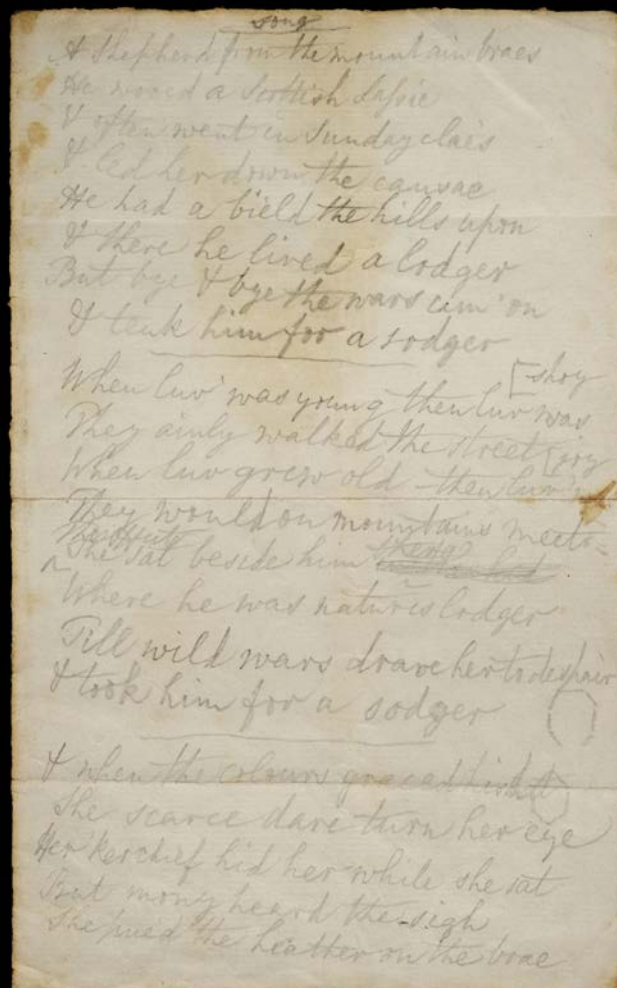 song
A Shepherd from the mountain braes
He wooed a Scottish Lassie
& often went in Sunday claes
& led her down the causae
He had a bield the hills upon
& there he lived a lodger
But bye & bye the wars cam' on
& teuk him for a sodger
When luv' was young then luv was [shoy
They ainly walked the street
When luv grew old then luv's [joy
They would on mountains meet
She sat beside him there
Where he was natures lodger
Till wild wars drave her to despair
& took him for a sodger
& when the colours graced his hat
She scarce dare turn her eye
Her 'kerchief hid her while she sat
But mony heard the sigh
She pued the heather on the brae